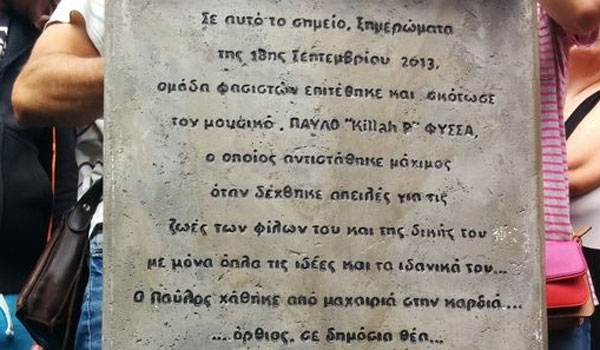 Σε αυτό το σημείο, ξημερώματα
της 18ης Σεπτεμβρίου 2013,
ομάδα φασιστών επιτέθηκε και σκότωσε
τον μουσικό, ΠΑΥΛΟ "Killah P" ΦΥΣΣΑ,
ο οποίος αντιστάθηκε μάχιμος
όταν δέχθηκε απειλές για τις
ζωές των φίλων του και της δικής του
με μόνα όπλα τις ιδέες και τα ιδανικά του...
Ο Παύλος χάθηκε από μαχαιριά στην καρδιά...
...όρθιος, σε δημόσια θέα...